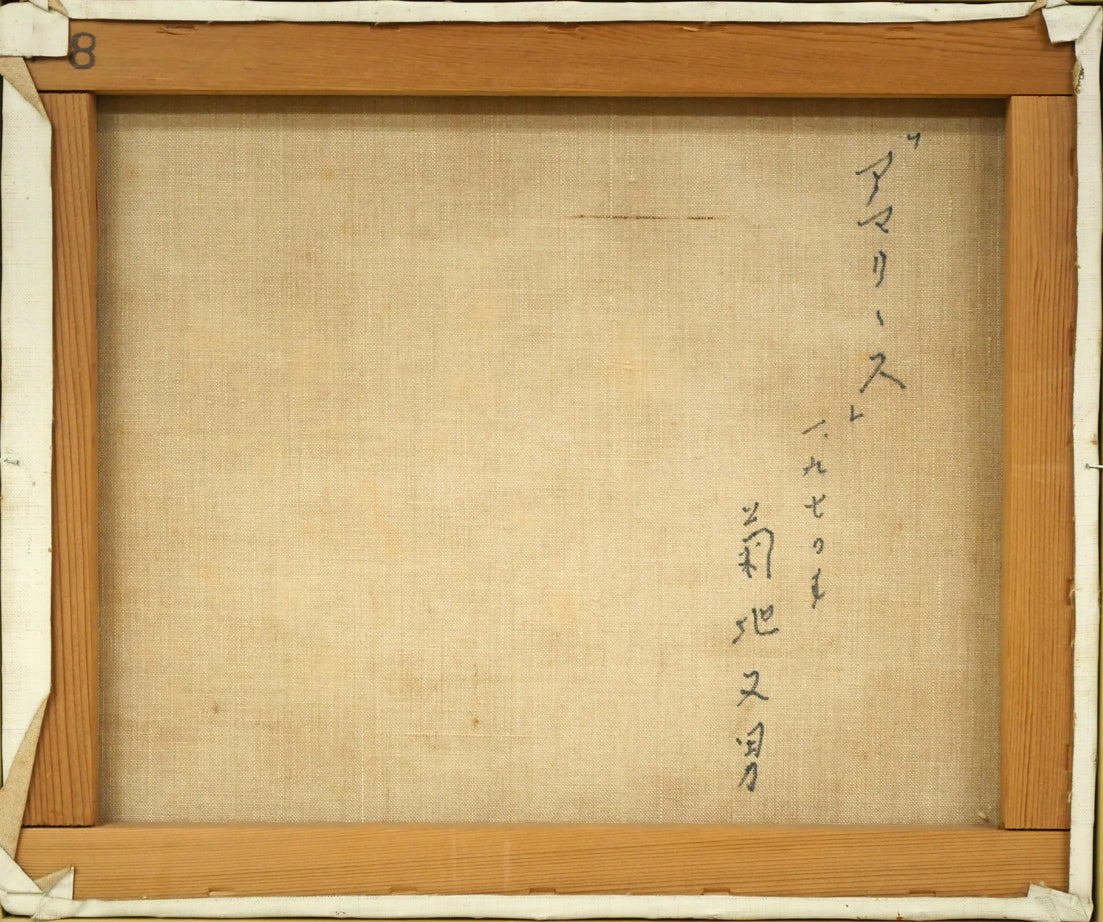 "アマリース"
一九七〇年
菊池又男
8